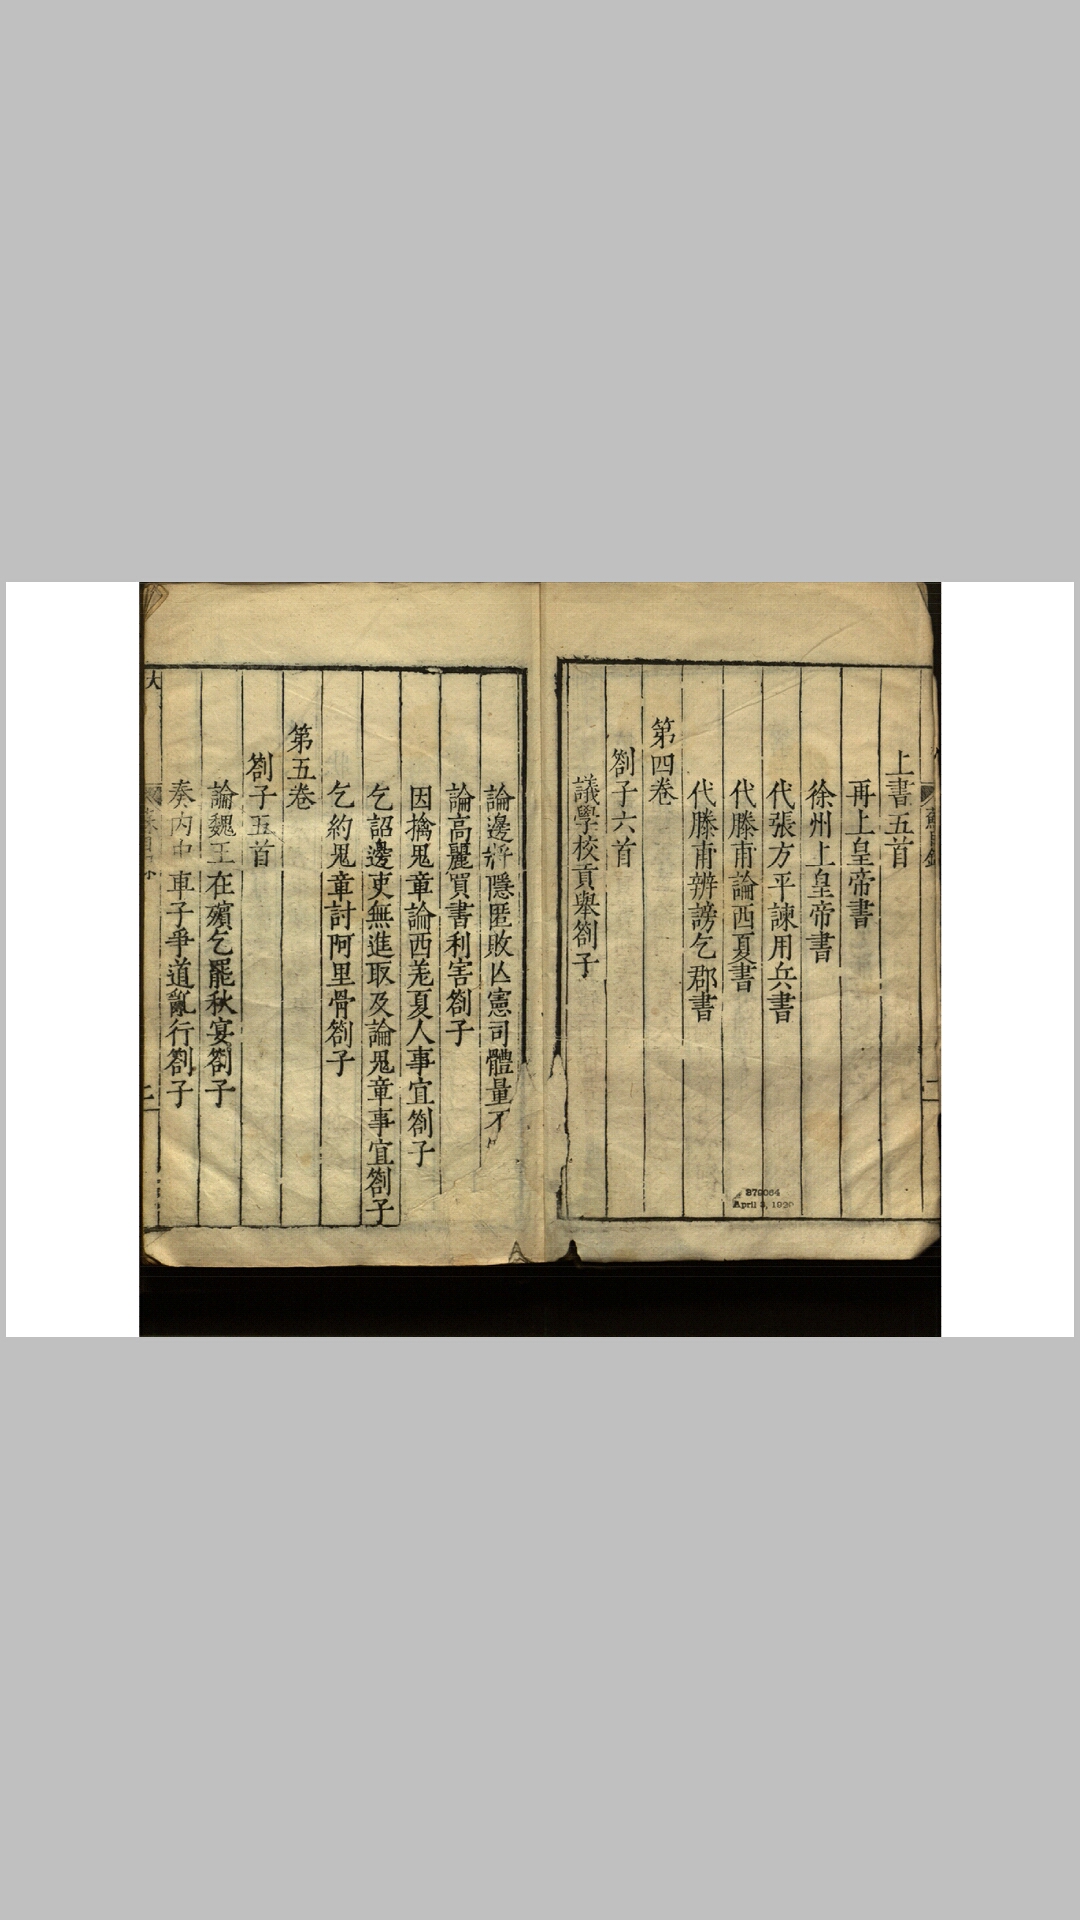 上書五首
再上皇帝書
徐州上皇帝書
代張方平諫用兵書
代滕甫論西夏書
代滕甫辨謗乞郡書
第四卷
劄子六首
議學校貢舉劄子
論邊將隱匿敗亾憲司體量不
論高麗買書利害劄子
因擒鬼章論西羌夏人事宜劄子
乞詔邊吏無進取及論鬼章事宜劄子
乞約鬼章討阿里骨劄子
第五卷
劄子五首
論魏王在殯乞罷秋宴劄子
奏內中車子爭道亂行劄子
B79064
April 3, 192